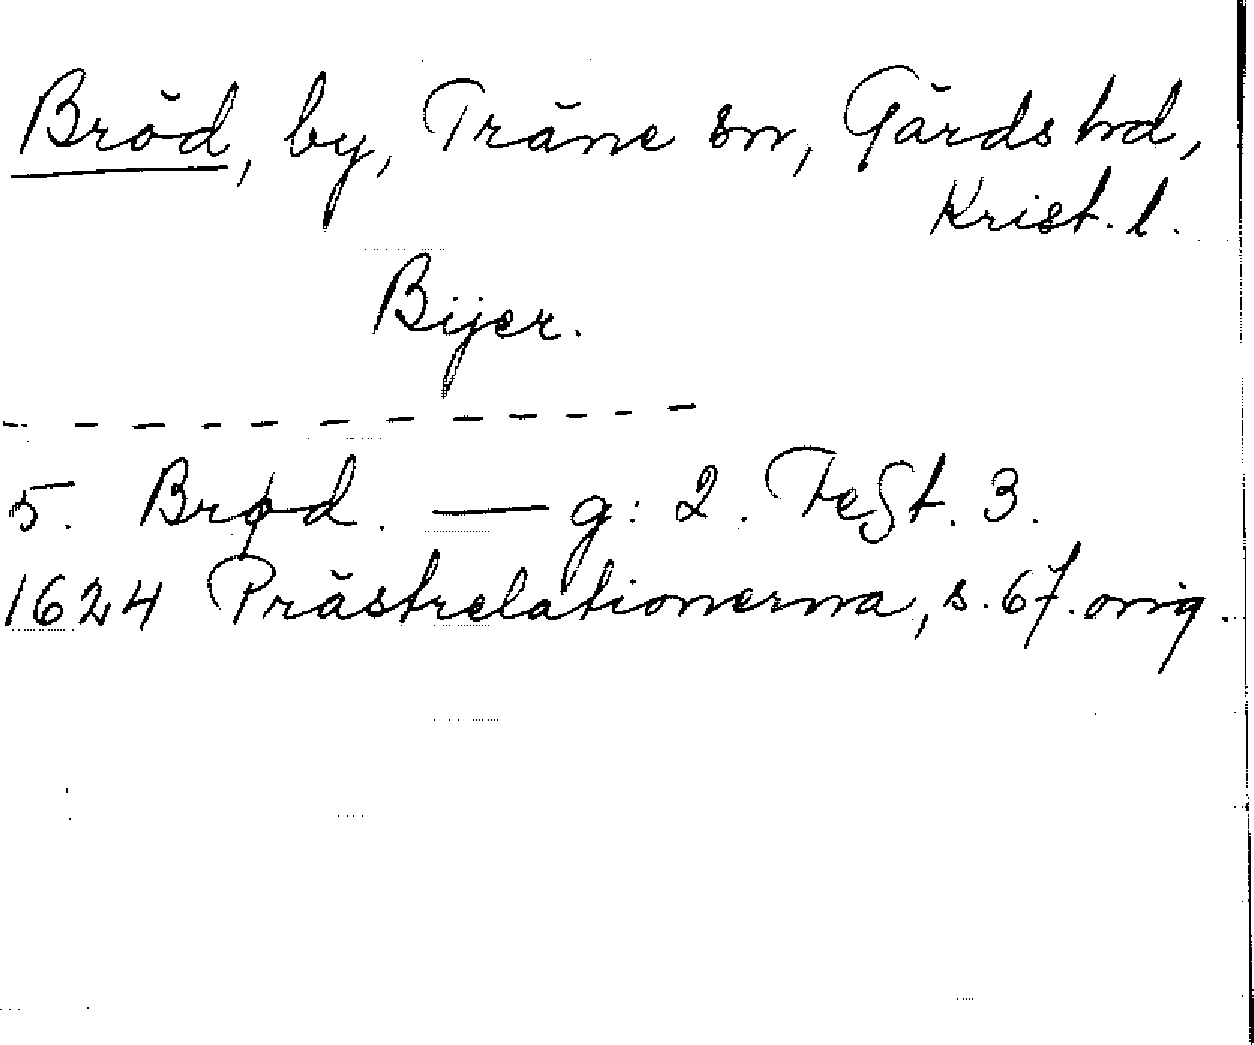 Bröd, by, Träne sn, Gärds hd,
Krist. l.
Bijer.
5. Brød. — g: 2. Fest. 3.
1624 Prästrelationerna, s. 67. orig.